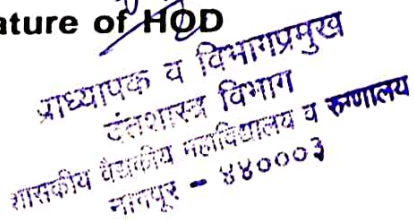 ature of HOD
प्राध्यापक व विभागप्रमुख
दंतशास्त्र विभाग
शासकीय वैद्यकीय महाविद्यालय व रुग्णालय
नागपूर - ४४०००३